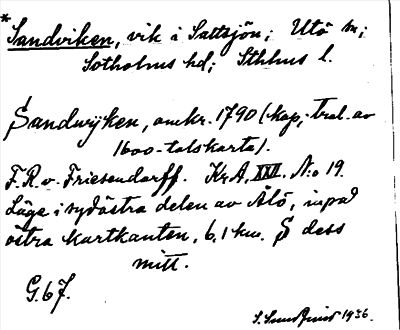 * Sandviken, vik i Saltsjön; Utö sn;
Sotholms hd; Sthlms l.
Sandwijken, omkr. 1790 (kop. trol. av
1600-talskarta).
F. R. v. Friesendorff. Kr.A. XXI. No 19.
Läge i sydöstra delen av Ålö, invid
östra kartkanten, 6,1 km. S dess
mitt.
G.67.
1936.